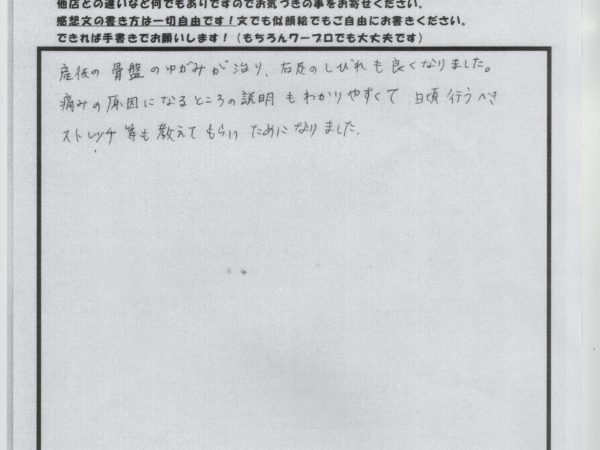 他店との違いなど何でもありですのでお気づきの事をお寄せください。
感想文の書き方は一切自由です!文でも似顔絵でもご自由にお書きください。
できれば手書きでお願いします!(もちろんワープロでも大丈夫です)
産後の骨盤のゆがみが治り、右足のしびれも良くなりました。
痛みの原因になるところの説明もわかりやすくて日頃行うべき
ストレッチ等も教えてもらいためになりました。